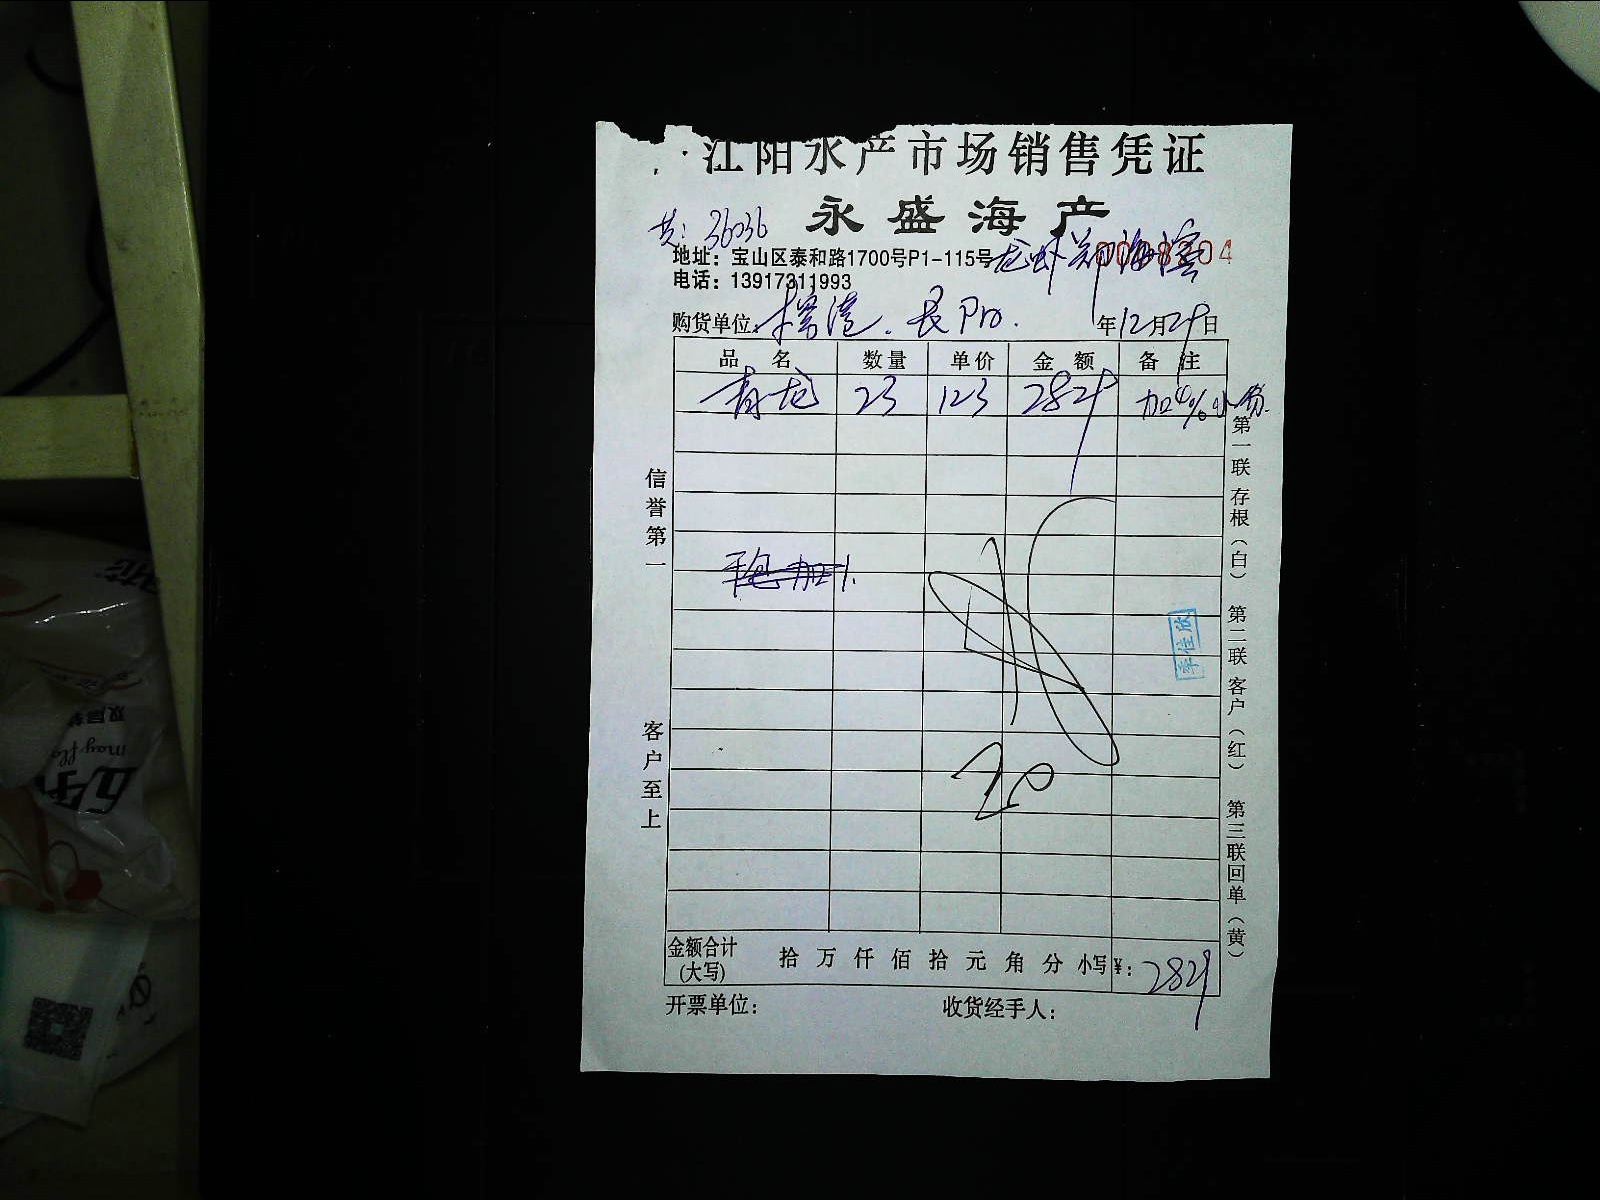 江阳水产市场销售凭证
永盛海产
36036
地址：宝山区泰和路1700号P1-115号
龙虾 郑海滨
电话：13917311993
购货单位： 年12月29日
品名 数量 单价 金额 备注
青龙 23 123 2829 加4%水份
信誉第一
客户至上
第一联存根（白） 第二联客户（红） 第三联回单（黄）
季佳欣
金额合计（大写） 拾 万 仟 佰 拾 元 角 分 小写￥：2829
开票单位： 收货经手人：